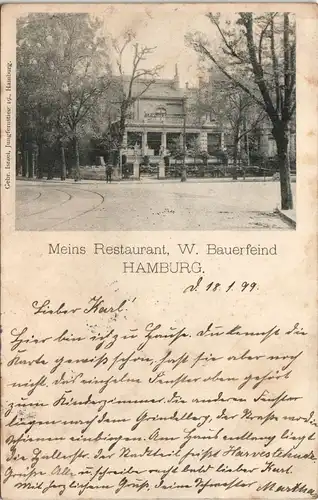 Gebr. Isaac, Jungfernstieg 19, Hamburg.
Meins Restaurant, W. Bauerfeind
HAMBURG.
d. 18.1.99.
Lieber Karl!
Hier bin ich zu Hause. Du kennst die
Karte gewiß schon, hast sie aber noch
nicht. das einzelne Fenster oben gehört
zum Kinderzimmer. die anderen Fenster
liegen nach dem Grindelberg, der Straße wo die
Schienen einbiegen. Am Haus entlang liegt
die Hallerstr. der Stadtteil heißt Harvestehude.
Grüße Alle u. schreibe recht bald lieber Karl.
Mit herzlichem Gruß, deine Schwester Martha.